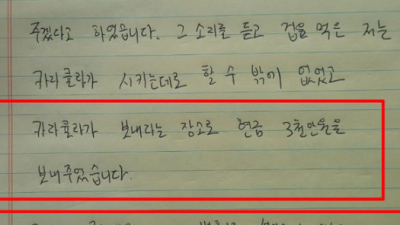 주겠다고 하였습니다. 그 소리를 듣고 겁을 먹은 저는
카라쿨라가 시키는데로 할 수 밖에 없었고
카라쿨라가 보내라는 장소로 현금 3천만원을
보내주었습니다.